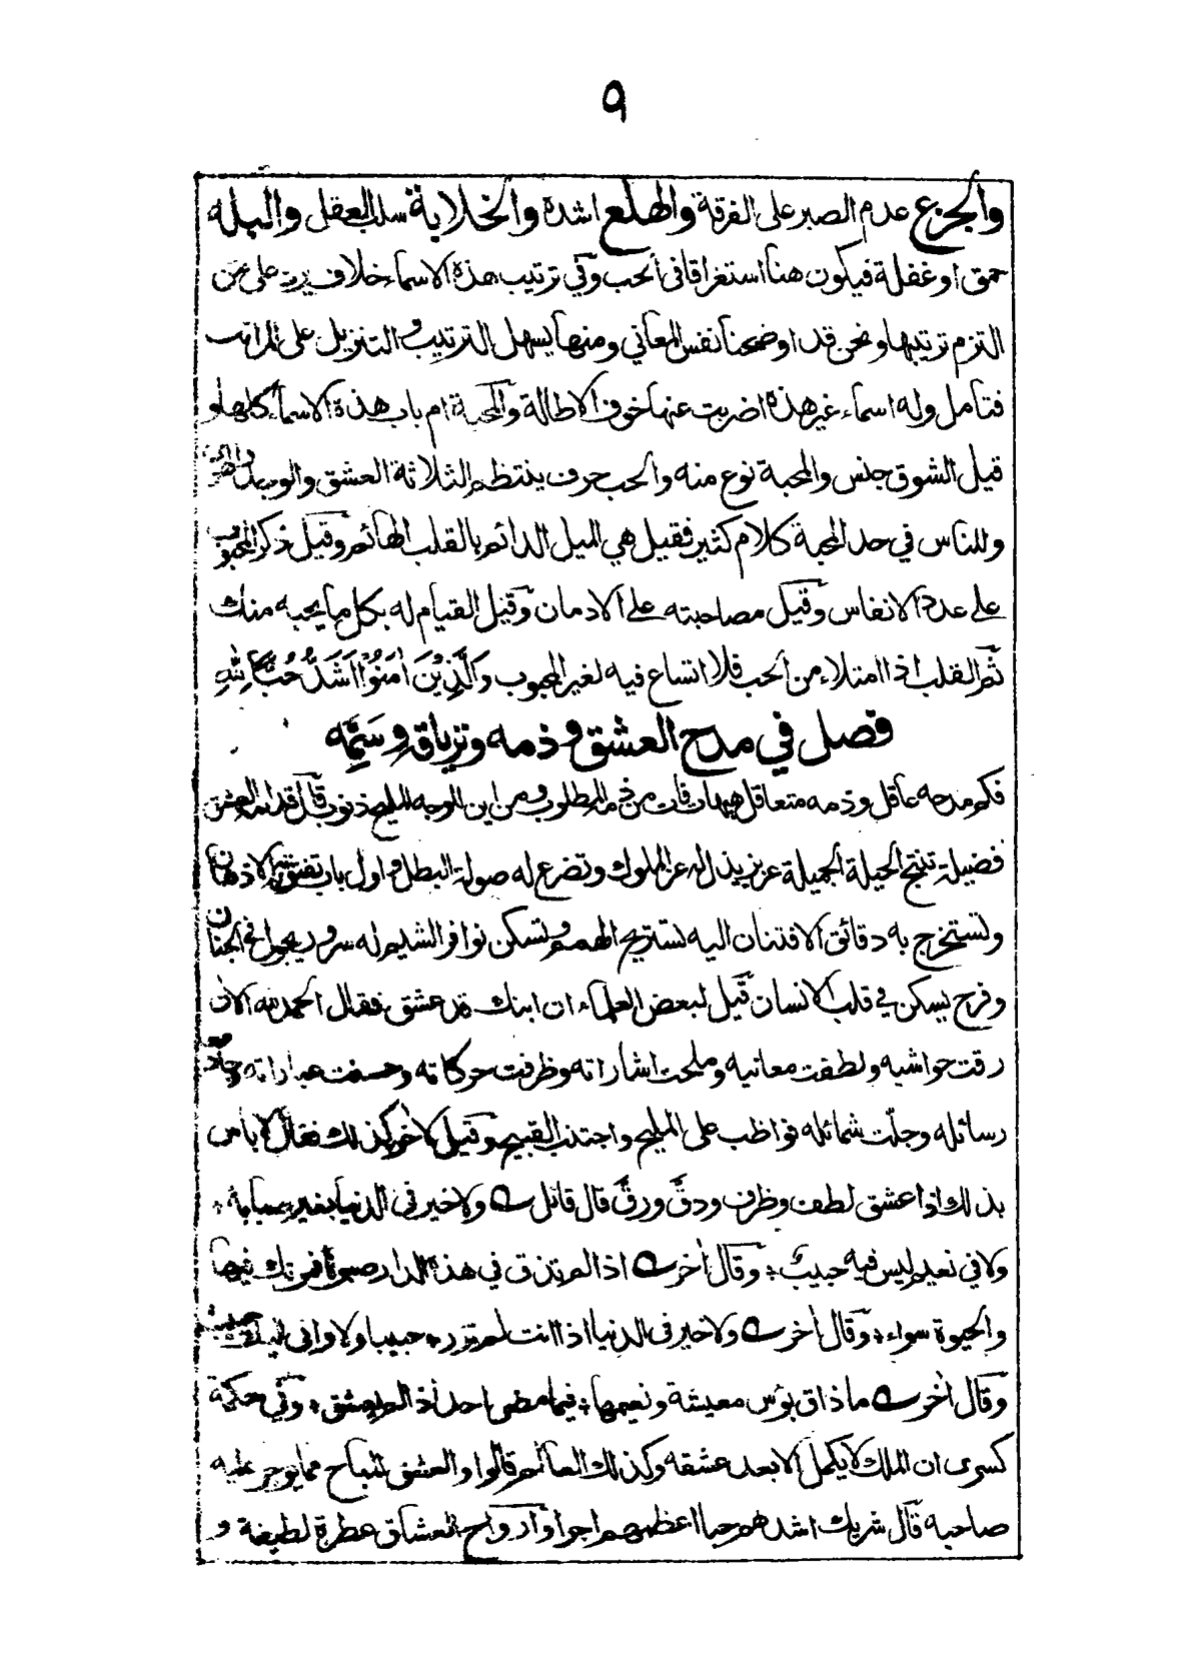 ٩
والجزع عدم الصبر على الفرقة والهلع اشده والخلابة سلب العقل والبله
حمق او غفلة فيكون هنا استغراقا في الحب وفي ترتيب هذه الاسماء خلاف يرد على من
التزم ترتيبها ونحن قد اوضحنا نفس المعاني ومنها يسهل الترتيب والتنزيل على المراتب
فتامل وله اسماء غير هذه اضربت عنها خوف الاطالة والمحبة ام باب هذه الاسماء كلها و
قيل الشوق جنس والمحبة نوع منه والحب حرف ينتظم الثلاثة العشق والوجد والهوى
وللناس في حد المحبة كلام كثير فقيل هي الميل الدائم بالقلب الهائم وقيل ذكر المحبوب
على عدد الانفاس وقيل مصاحبته على الادمان وقيل القيام له بكل ما يحبه منك
ثم القلب اذا امتلاء من الحب فلا اتساع فيه لغير المحبوب وَالَّذِيْنَ اٰمَنُوْا اَشَدُّ حُبًّا لِلّٰهِ
فصل في مدح العشق وذمه وترياقه وسَمِّه
فكم مدحه عاقل وذمه متعاقل هيهات فات من ذم المطلوب ومن اين للوجه المليح ذنوب قال قدامه العشق
فضيلة تنتج الحيلة الجميلة عزيز يذل له عز الملوك وتضرع له صولة البطل واول باب تفتق به الاذهان
وتستخرج به دقائق الافتنان اليه تستريح الهمم وتسكن نوافر الشيم له سرور يجول في الجنان
وفرح يسكن في قلب الانسان قيل لبعض العلماء ان ابنك قد عشق فقال الحمد لله الان
رقت حواشيه ولطفت معانيه وملحت اشاراته وظرفت حركاته وحسنت عباراته وجادت
رسائله وجلّت شمائله فواظب على المليح واجتنب القبيح وقيل لاٰخر كذلك فقال لا باس
بذلك اذا عشق لطف وظرف ودقَّ ورقَّ قال قائل ولا خير في الدنيا بغير صبابة
ولا في نعيم ليس فيه حبيب وقال اٰخر اذا لم تذق في هذه الدار صبوة فموتك فيها
والحيوة سواء وقال اٰخر ولا خير في الدنيا اذا انت لم تزر حبيبا ولا وافى اليك حبيب
وقال اٰخر ما ذاق بؤس معيشة ونعيمها فيما مضى احد اذا لم يعشق وفي حكمة
كسرى ان الملك لا يكمل الا بعد عشقه وكذلك العالم قالوا والعشق المباح مما يوجر عليه
صاحبه قال شريك اشدهم حبا اعظمهم اجرا وارواح العشاق عطرة لطيفة و